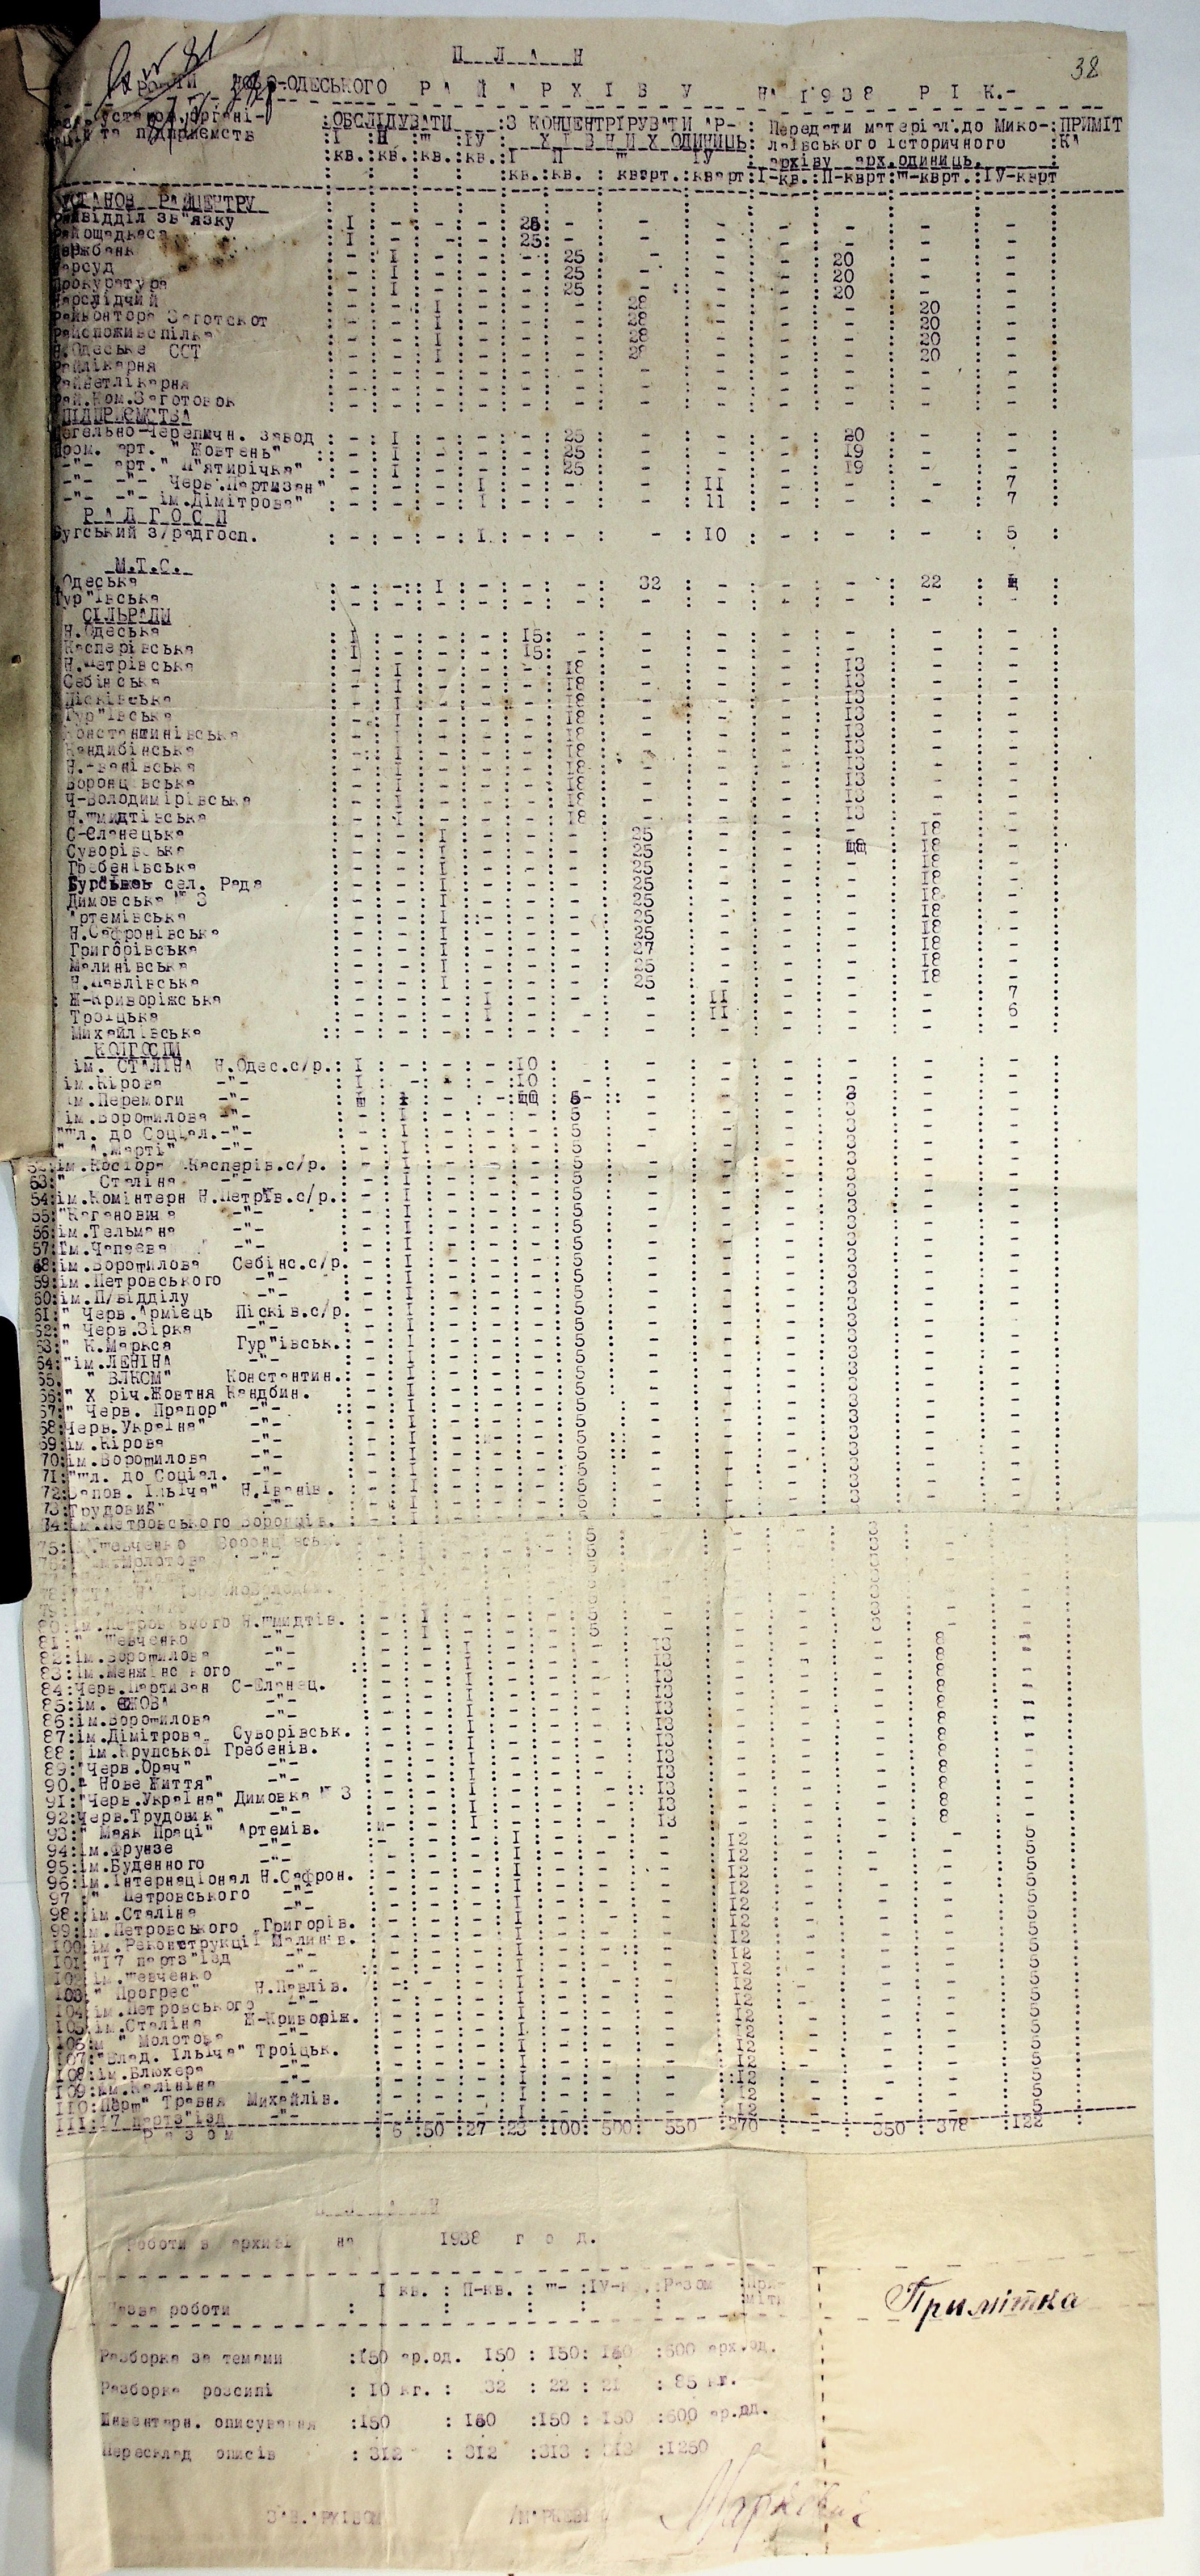 38
П Л А Н
РОБОТИ НОВО-ОДЕСЬКОГО Р А Й А Р Х І В У НА 1938 Р І К.-
установ, органі- :ОБСЛІДУВАТИ :З КОНЦЕНТРІРУВАТИ АР-: Передати матеріал.до Мико-:ПРИМІТ
та підприємств :І :П :Ш :ІУ : Х І В Н И Х ОДИНИЦЬ: лаївського історичного :КА
:кв.:кв.:кв.:кв.:І П Ш ІУ :архіву арх.одиниць.
:кв.:кв. : кварт.:кварт:І-кв.:П-кварт:Ш-кварт.:ІУ-кварт
УСТАНОВ РАЙЦЕНТРУ
Райвідділ зв"язку : І : - : - : - : 25: - : - : - : - : - : - : - :
Райощадкаса : І : - : - : - : 25: - : - : - : - : - : - : - :
Держбанк : - : І : - : - : - : 25 : - : - : - : 20 : - : - :
Нарсуд : - : І : - : - : - : 25 : - : - : - : 20 : - : - :
Прокуратура : - : І : - : - : - : 25 : - : - : - : 20 : - : - :
Нарслідчий : - : - : І : - : - : - : 28 : - : - : - : 20 : - :
Райконтора Заготскот : - : - : І : - : - : - : 28 : - : - : - : 20 : - :
Райспоживспілка : - : - : І : - : - : - : 28 : - : - : - : 20 : - :
Н.Одеське ССТ : - : - : І : - : - : - : 28 : - : - : - : 20 : - :
Райлікарня : - : - : - : - : - : - : - : - : - : - : - : - :
Райветлікарня : - : - : - : - : - : - : - : - : - : - : - : - :
Рай.Ком.Заготовок : - : - : - : - : - : - : - : - : - : - : - : - :
ПІДПРИЄМСТВА
Цегельно-Черепичн. Завод : - : І : - : - : - : 25 : - : - : - : 20 : - : - :
Пром. арт. " Жовтень" : - : І : - : - : - : 25 : - : - : - : 19 : - : - :
-"- арт." П"ятирічка" : - : І : - : - : - : 25 : - : - : - : 19 : - : - :
-"- -"- Черв.Партизан" : - : - : - : І : - : - : - : 11 : - : - : - : 7 :
-"- -"- ім.Дімітрова" : - : - : - : І : - : - : - : 11 : - : - : - : 7 :
Р А Д Г О С П
Бугський з/радгосп. : - : - : - : І : - : - : - : 10 : - : - : - : 5 :
М.Т.С.
Одеська : - : - : І : - : - : - : 32 : - : - : - : 22 : - :
Гур"ївська : - : - : - : - : - : - : - : - : - : - : - : - :
СІЛЬРАДИ
Н.Одеська : І : - : - : - : 15: - : - : - : - : - : - : - :
Касперівська : І : - : - : - : 15: - : - : - : - : - : - : - :
Н.Петрівська : - : І : - : - : - : 18 : - : - : - : 13 : - : - :
Себінська : - : І : - : - : - : 18 : - : - : - : 13 : - : - :
Пісківська : - : І : - : - : - : 18 : - : - : - : 13 : - : - :
Гур"ївська : - : І : - : - : - : 18 : - : - : - : 13 : - : - :
Константинівська : - : І : - : - : - : 18 : - : - : - : 13 : - : - :
Кандибінська : - : І : - : - : - : 18 : - : - : - : 13 : - : - :
Н.Іванівська : - : І : - : - : - : 18 : - : - : - : 13 : - : - :
Воронцівська : - : І : - : - : - : 18 : - : - : - : 13 : - : - :
Ч-Володимірівська : - : І : - : - : - : 18 : - : - : - : 13 : - : - :
Н.Шмидтівська : - : І : - : - : - : 18 : - : - : - : 13 : - : - :
С-Єланецька : - : - : І : - : - : - : 25 : - : - : - : 18 : - :
Суворівська : - : - : І : - : - : - : 25 : - : - : : 18 : - :
Гребенівська : - : - : І : - : - : - : 25 : - : - : - : 18 : - :
сел. Рада : - : - : І : - : - : - : 25 : - : - : - : 18 : - :
Димовська № 3 : - : - : І : - : - : - : 25 : - : - : - : 18 : - :
Артемівська : - : - : І : - : - : - : 25 : - : - : - : 18 : - :
Н.Сафронівська : - : - : І : - : - : - : 25 : - : - : - : 18 : - :
Григорівська : - : - : І : - : - : - : 27 : - : - : - : 18 : - :
Малинівська : - : - : І : - : - : - : 25 : - : - : - : 18 : - :
Н.Павлівська : - : - : І : - : - : - : 25 : - : - : - : 18 : - :
Ж-Криворіжська : - : - : - : І : - : - : - : 11 : - : - : - : 7 :
Троїцька : - : - : - : І : - : - : - : 11 : - : - : - : 6 :
Михайлівська : - : - : - : - : - : - : - : - : - : - : - : - :
КОЛГОСПИ
ім. СТАЛІНА Н.Одес.с/р.: І : - : - : - :10 : - : - : - : - : - : - : - :
ім.Кірова -"- : І : - : - : - :10 : - : - : - : - : - : - : - :
ім.Перемоги -"- : 5 : - : - : - : 3 : - : - :
ім.Ворошилова -"- : - : І : - : - : - : 5 : - : - : - : 3 : - : - :
"Шл. до Соціал.-"- : - : І : - : - : - : 5 : - : - : - : 3 : - : - :
" А.Марті" -"- : - : І : - : - : - : 5 : - : - : - : 3 : - : - :
52:ім.Косіора Касперів.с/р. : - : І : - : - : - : 5 : - : - : - : 3 : - : - :
53:" Сталіна -"- : - : І : - : - : - : 5 : - : - : - : 3 : - : - :
54:ім.Комінтерн Н.Петрів.с/р.: - : І : - : - : - : 5 : - : - : - : 3 : - : - :
55:"Кагановича -"- : - : І : - : - : - : 5 : - : - : - : 3 : - : - :
56:ім.Тельмана -"- : - : І : - : - : - : 5 : - : - : - : 3 : - : - :
57:Ім.Чапаєва -"- : - : І : - : - : - : 5 : - : - : - : 3 : - : - :
58:ім.Ворошилова Себінс.с/р. : - : І : - : - : - : 5 : - : - : - : 3 : - : - :
59:ім.Петровського -"- : - : І : - : - : - : 5 : - : - : - : 3 : - : - :
60:ім.П/відділу -"- : - : І : - : - : - : 5 : - : - : - : 3 : - : - :
61:" Черв.Армієць Пісків.с/р. : - : І : - : - : - : 5 : - : - : - : 3 : - : - :
62:" Черв.Зірка -"- : - : І : - : - : - : 5 : - : - : - : 3 : - : - :
63:" К.Маркса Гур"івськ. : - : І : - : - : - : 5 : - : - : - : 3 : - : - :
64:"ім.ЛЕНІНА -"- : - : І : - : - : - : 5 : - : - : - : 3 : - : - :
65. " ВЛКСМ" Константин.: - : І : - : - : - : 5 : - : - : - : 3 : - : - :
66:" Х річ.Жовтня Кандбин. : - : І : - : - : - : 5 : - : - : - : 3 : - : - :
67:" Черв. Прапор" -"- : - : І : - : - : - : 5 : - : - : - : 3 : - : - :
68:Черв.Україна" -"- : - : І : - : - : - : 5 : - : - : - : 3 : - : - :
69:ім.Кірова -"- : - : І : - : - : - : 5 : - : - : - : 3 : - : - :
70:ім.Ворошилова -"- : - : І : - : - : - : 5 : - : - : - : 3 : - : - :
71:"Шл. до Соціал. -"- : - : І : - : - : - : 5 : - : - : - : 3 : - : - :
72:Запов. Ілліча" Н.Іванів. : - : І : - : - : - : 5 : - : - : - : 3 : - : - :
73:Трудовик" -"- : - : І : - : - : - : 5 : - : - : - : 3 : - : - :
74:ім.Петровського Воронців. : - : І : - : - : - : 5 : - : - : - : 3 : - : - :
75: Шевченко Воронцівськ. 5 3
76: ім.Молотова 5 3
80:ім.Петровського Н.Шмидтів. : - : І : - : - : - : 5 : - : - : - : 3 : - : - :
81:" Шевченко -"- : - : - : І : - : - : - : 13 : - : - : - : 8 : - :
82:ім.Ворошилова -"- : - : - : І : - : - : - : 13 : - : - : - : 8 : - :
83:Ім.Менжінського -"- : - : - : І : - : - : - : 13 : - : - : - : 8 : - :
84:Черв.Партизан С-Еланец. : - : - : І : - : - : - : 13 : - : - : - : 8 : - :
85:ім. ЄЖОВА -"- : - : - : І : - : - : - : 13 : - : - : - : 8 : - :
86:ім.Ворошилова -"- : - : - : І : - : - : - : 13 : - : - : - : 8 : - :
87:ім.Дімітрова Суворівськ. : - : - : І : - : - : - : 13 : - : - : - : 8 : - :
88: ім.Крупської Гребенів. : - : - : І : - : - : - : 13 : - : - : - : 8 : - :
89:"Черв.Орач" -"- : - : - : І : - : - : - : 13 : - : - : - : 8 : - :
90." Нове Життя" -"- : - : - : І : - : - : - : 13 : - : - : - : 8 : - :
91:"Черв.Україна" Димовка № 3 : - : - : І : - : - : - : 13 : - : - : - : 8 : - :
92:Черв.Трудовик" -"- : - : - : І : - : - : - : 13 : - : - : - : 8 : - :
93:" Маяк Праці" Артемів. : - : - : - : І : - : - : - : 12 : - : - : - : 5 :
94:ім.Фрунзе -"- : - : - : - : І : - : - : - : 12 : - : - : - : 5 :
95:ім.Буденного -"- : - : - : - : І : - : - : - : 12 : - : - : - : 5 :
96:ім.Інтернаціонал Н.Сафрон. : - : - : - : І : - : - : - : 12 : - : - : - : 5 :
97 :" Петровського -"- : - : - : - : І : - : - : - : 12 : - : - : - : 5 :
98: ім.Сталіна -"- : - : - : - : І : - : - : - : 12 : - : - : - : 5 :
99:ім.Петровського Григорів. : - : - : - : І : - : - : - : 12 : - : - : - : 5 :
100:ім.Реконструкції Малинів. : - : - : - : І : - : - : - : 12 : - : - : - : 5 :
101:"17 партз"їзд -"- : - : - : - : І : - : - : - : 12 : - : - : - : 5 :
102:ім.Шевченко -"- : - : - : - : І : - : - : - : 12 : - : - : - : 5 :
103:" Прогрес" Н.Павлів. : - : - : - : І : - : - : - : 12 : - : - : - : 5 :
104:ім.Петровського -"- : - : - : - : І : - : - : - : 12 : - : - : - : 5 :
105:ім.Сталіна Ж-Криворіж. : - : - : - : І : - : - : - : 12 : - : - : - : 5 :
106:м " Молотова -"- : - : - : - : І : - : - : - : 12 : - : - : - : 5 :
107:"Влад. Ілліча" Троїцьк. : - : - : - : І : - : - : - : 12 : - : - : - : 5 :
108:ім.Блюхера -"- : - : - : - : І : - : - : - : 12 : - : - : - : 5 :
109:ім.Калініна -"- : - : - : - : І : - : - : - : 12 : - : - : - : 5 :
110:Перш" Травня Михайлів. : - : - : - : І : - : - : - : 12 : - : - : - : 5 :
111:17 партз"їзд -"-
Р а з о м : 6 :50 :27 :23 :100: 500: 550 :270 : - : 350 : 378 :122 :
П Л А Н
Роботи в архиві на 1938 г о д.
Назва роботи І кв. : П-кв. : Ш- :ІУ-кв.:Разом :При-
міт
Примітка
Разборка за темами :150 ар.од. 150 : 150: 150 :600 арх.од.
Разборка розсипі : 10 кг. : 32 : 22 : 21 : 85 кг.
Інвентарн. описування :150 : 150 :150 : 150 :600 ар.од.
Пересклад описів : 312 : 312 :313 : 313 :1250
ЗАВ.АРХІВОМ /МАРКЕВИ